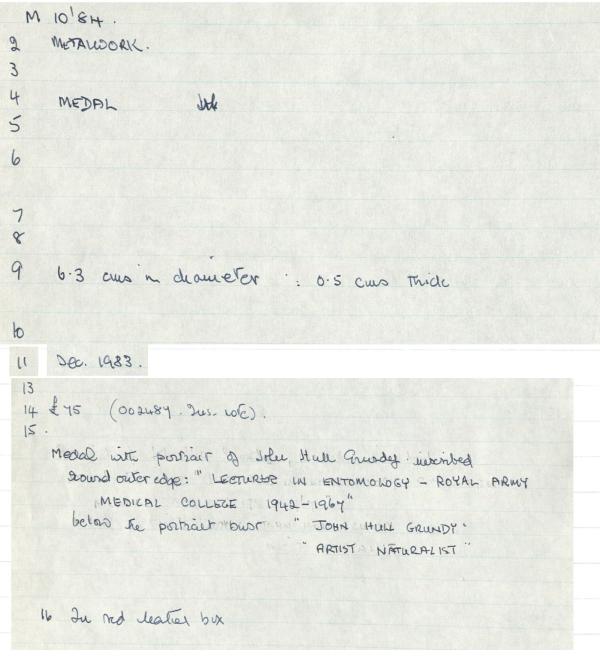 M 10'84.
2 METALWORK.
3
4 MEDAL
5
6
7
8
9 6.3 cms in diameter : 0.5 cms Thick
10
11 Dec. 1983.
13
14 £75 (002489. Ins. vote).
15.
Medal with portrait of John Hull Grundy inscribed
round outer edge: " LECTURER IN ENTOMOLOGY - ROYAL ARMY
MEDICAL COLLEGE 1942-1967"
below the portrait bust " JOHN HULL GRUNDY.
" ARTIST NATURALIST "
16 In red leather box